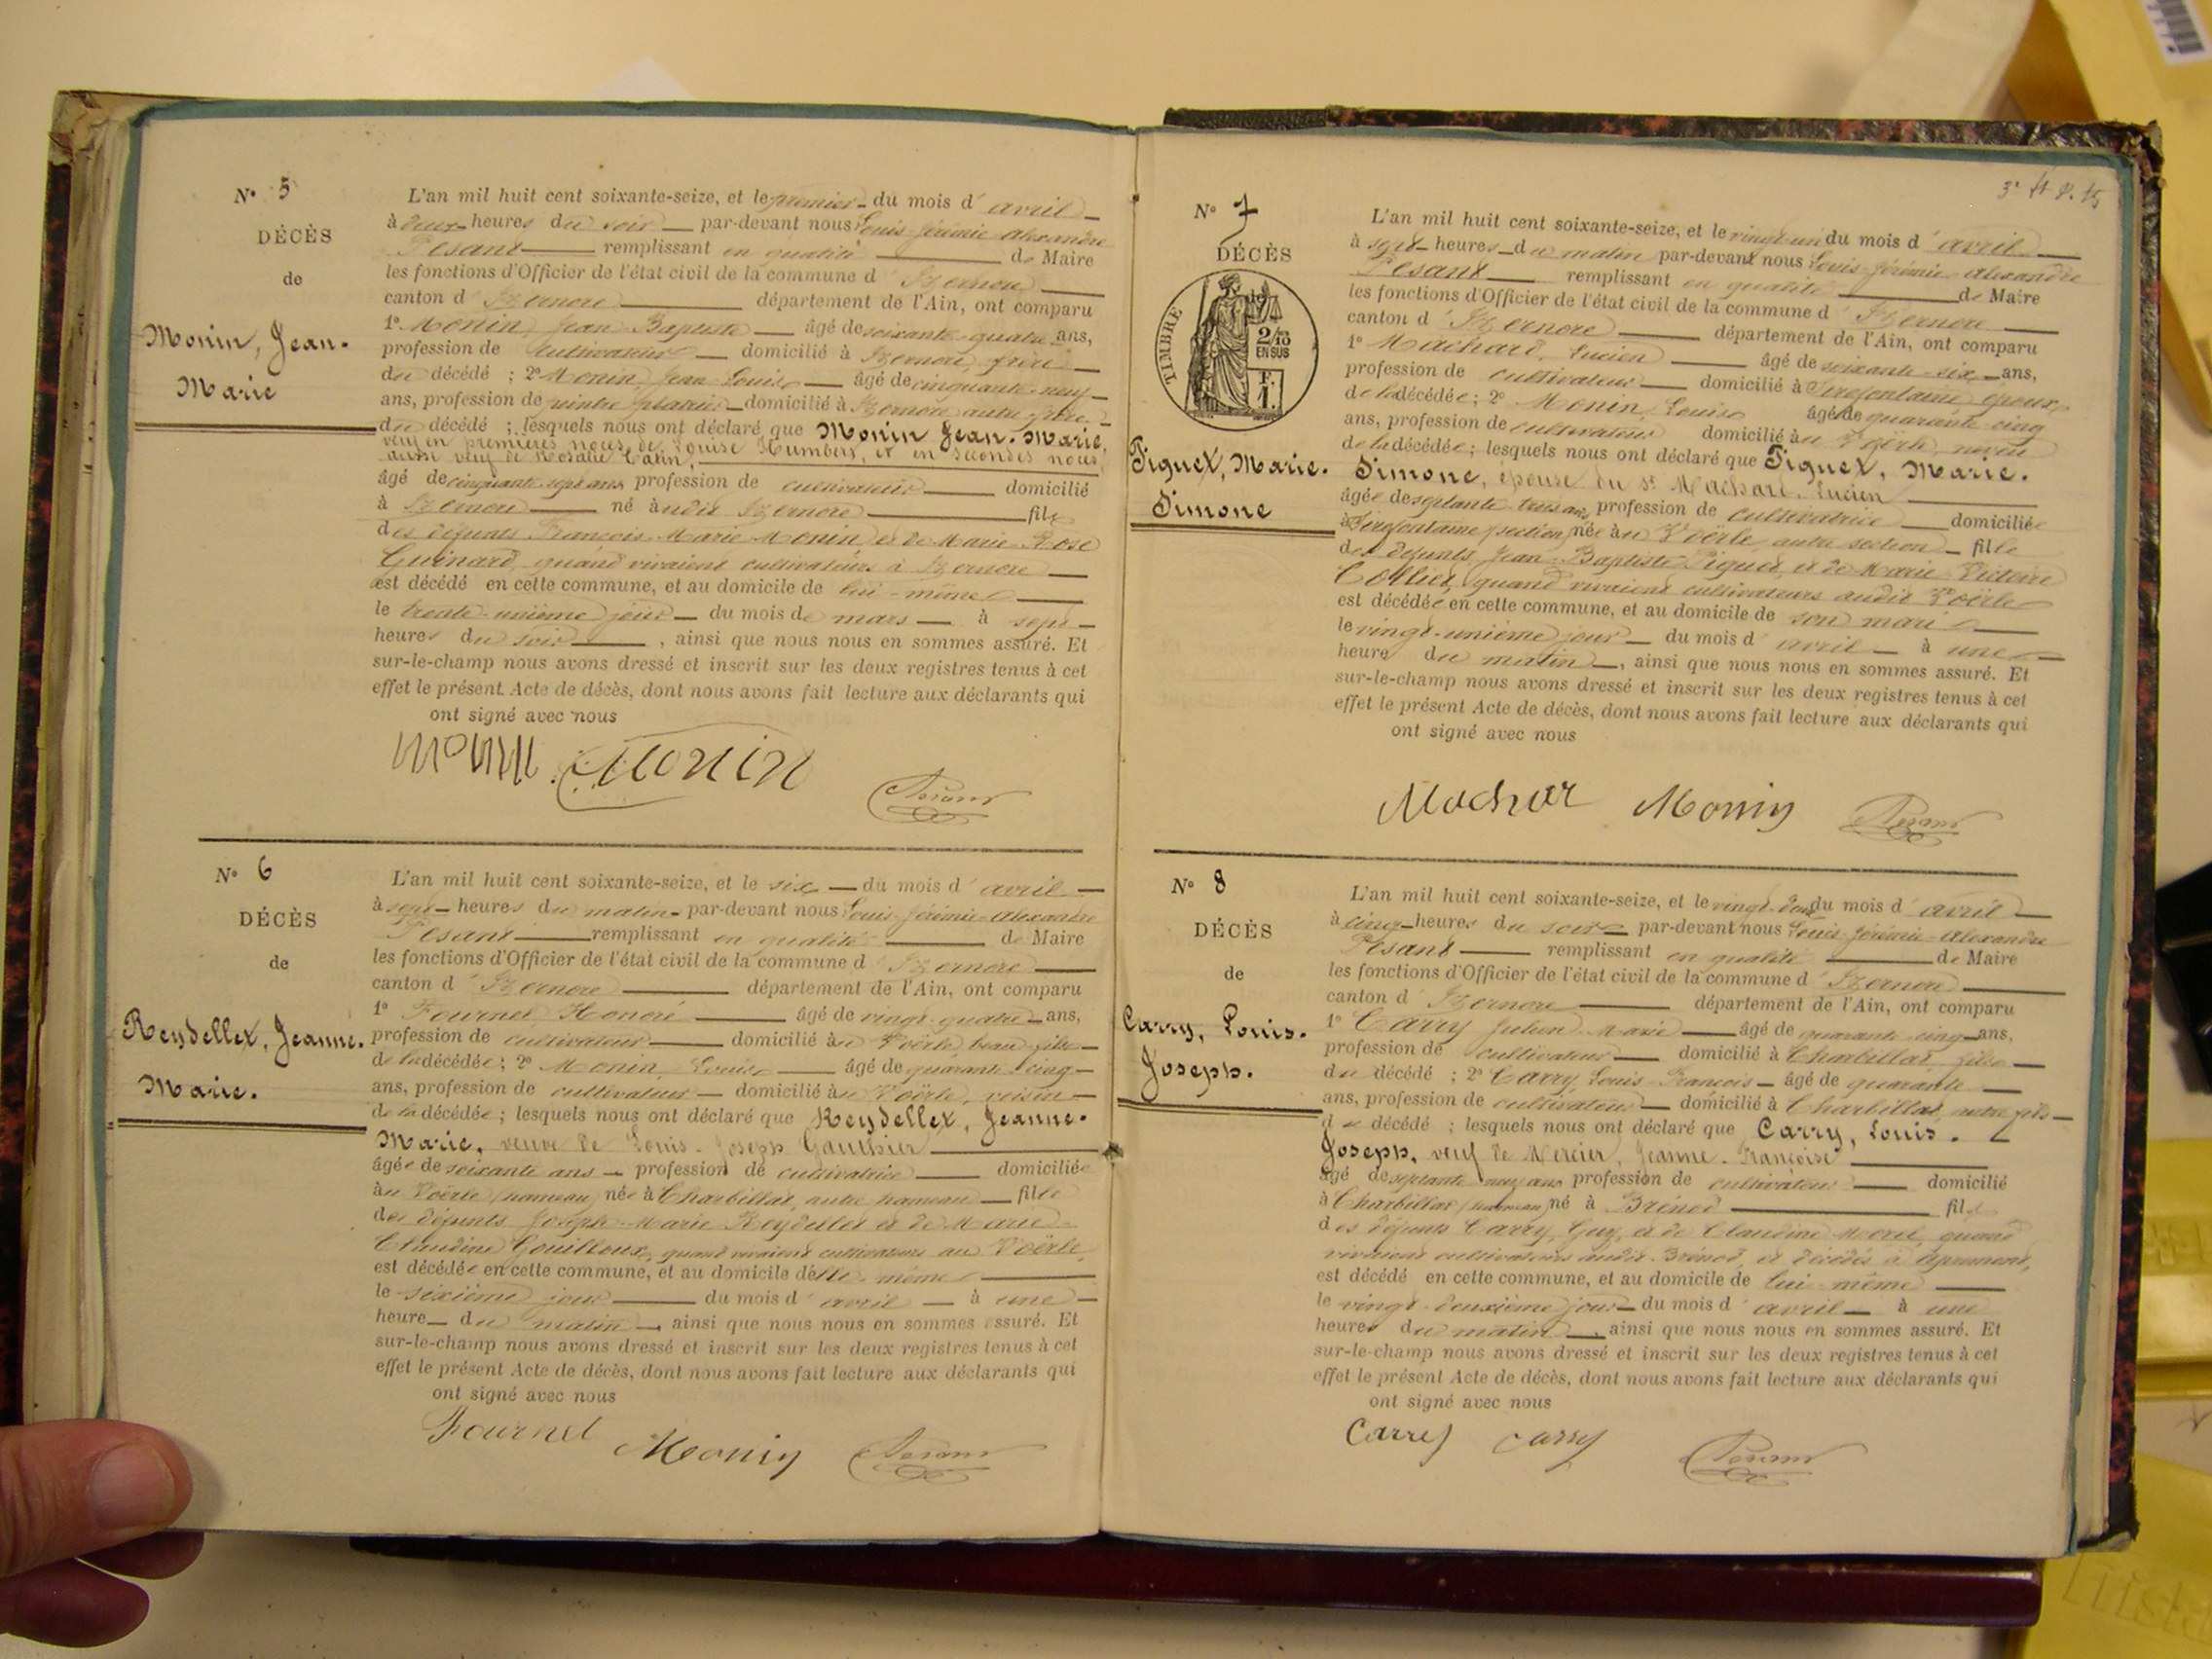 N° 5
DÉCÈS
de
Monin, Jean-
Marie
L'an mil huit cent soixante-seize, et le premier du mois d'avril
à deux heures du soir par-devant nous Louis Jérémie Alexandre
Pesant remplissant en qualité de Maire
les fonctions d'Officier de l'état civil de la commune d'Izernore
canton d'Izernore département de l'Ain, ont comparu
1° Monin Jean Baptiste âgé de soixante-quatre ans,
profession de cultivateur domicilié à Izernore, frère
du décédé ; 2° Monin, Jean Louis âgé de cinquante-neuf
ans, profession de peintre plâtrier domicilié à Izernore autre frère
du décédé ; lesquels nous ont déclaré que Monin Jean-Marie,
veuf en premières noces de Louise Humbert, et en secondes noces,
aussi veuf de Rosalie
âgé de cinquante-sept ans profession de cultivateur domicilié
à Izernore né audit Izernore fils
des défunts François-Marie Monin et de Marie-Rose
Guinard, quand vivaient cultivateurs à Izernore
est décédé en cette commune, et au domicile de lui-même
le trente-unième jour du mois de mars à sept
heures du soir, ainsi que nous nous en sommes assuré. Et
sur-le-champ nous avons dressé et inscrit sur les deux registres tenus à cet
effet le présent Acte de décès, dont nous avons fait lecture aux déclarants qui
ont signé avec nous
Monin Monin Pesant
N° 6
DÉCÈS
de
Reydellet, Jeanne-
Marie.
L'an mil huit cent soixante-seize, et le six du mois d'avril
à sept heures du matin par-devant nous Louis Jérémie Alexandre
Pesant remplissant en qualité de Maire
les fonctions d'Officier de l'état civil de la commune d'Izernore
canton d'Izernore département de l'Ain, ont comparu
1° Fournet Honoré âgé de vingt-quatre ans,
profession de cultivateur domicilié au Voërle, beau-fils
de la décédée ; 2° Monin, Louis âgé de quarante-cinq
ans, profession de cultivateur domicilié au Voërle, voisin
de la décédée ; lesquels nous ont déclaré que Reydellet, Jeanne-
Marie, veuve de Louis-Joseph Gauthier
âgée de soixante ans profession de cultivatrice domiciliée
au Voërle (hameau) née à Charbillat, autre hameau fille
des défunts Joseph-Marie Reydellet et de Marie-
Claudine Gouilloux, quand vivaient cultivateurs au Voërle,
est décédée en cette commune, et au domicile d'elle-même
le sixième jour du mois d'avril à une
heure du matin, ainsi que nous nous en sommes assuré. Et
sur-le-champ nous avons dressé et inscrit sur les deux registres tenus à cet
effet le présent Acte de décès, dont nous avons fait lecture aux déclarants qui
ont signé avec nous
Fournet Monin Pesant
N° 7
DÉCÈS
TIMBRE
2/10
EN SUS
Piquet, Marie-
Simone
L'an mil huit cent soixante-seize, et le vingt-un du mois d'avril
à sept heures du matin par-devant nous Louis Jérémie Alexandre
Pesant remplissant en qualité de Maire
les fonctions d'Officier de l'état civil de la commune d'Izernore
canton d'Izernore département de l'Ain, ont comparu
1° Machard, Lucien âgé de soixante-six ans,
profession de cultivateur domicilié à Tirefontaine époux
de la décédée ; 2° Monin, Louis âgé de quarante cinq
ans, profession de cultivateur domicilié au Voërle, neveu
de la décédée ; lesquels nous ont déclaré que Piquet, Marie-
Simone, épouse du sr Machard, Lucien
âgée de septante-trois ans profession de cultivatrice domiciliée
à Tirefontaine (section) née au Voërle, autre section fille
des défunts Jean-Baptiste Piquet, et de Marie Victoire
Collet, quand vivaient cultivateurs audit Voërle
est décédée en cette commune, et au domicile de son mari
le vingt-unième jour du mois d'avril à une
heure du matin, ainsi que nous nous en sommes assuré. Et
sur-le-champ nous avons dressé et inscrit sur les deux registres tenus à cet
effet le présent Acte de décès, dont nous avons fait lecture aux déclarants qui
ont signé avec nous
Machar Monin Pesant
N° 8
DÉCÈS
de
Carry, Louis-
Joseph.
L'an mil huit cent soixante-seize, et le vingt-deux du mois d'avril
à cinq heures du soir par-devant nous Louis Jérémie Alexandre
Pesant remplissant en qualité de Maire
les fonctions d'Officier de l'état civil de la commune d'Izernore
canton d'Izernore département de l'Ain, ont comparu
1° Carry Julien Marie âgé de quarante-cinq ans,
profession de cultivateur domicilié à Charbillat, fils
du décédé ; 2° Carry, Louis-François âgé de quarante
ans, profession de cultivateur domicilié à Charbillat, autre fils
du décédé ; lesquels nous ont déclaré que Carry, Louis-
Joseph, veuf de Mercier, Jeanne-Françoise
âgé de septante ans profession de cultivateur domicilié
à Charbillat (hameau) né à Brénod fils
des défunts Carry, Guy, et de Claudine Morel, quand
vivaient cultivateurs audit Brénod, et décédés à Apremont,
est décédé en cette commune, et au domicile de lui-même
le vingt-deuxième jour du mois d'avril à une
heure du matin, ainsi que nous nous en sommes assuré. Et
sur-le-champ nous avons dressé et inscrit sur les deux registres tenus à cet
effet le présent Acte de décès, dont nous avons fait lecture aux déclarants qui
ont signé avec nous
Carry Carry Pesant